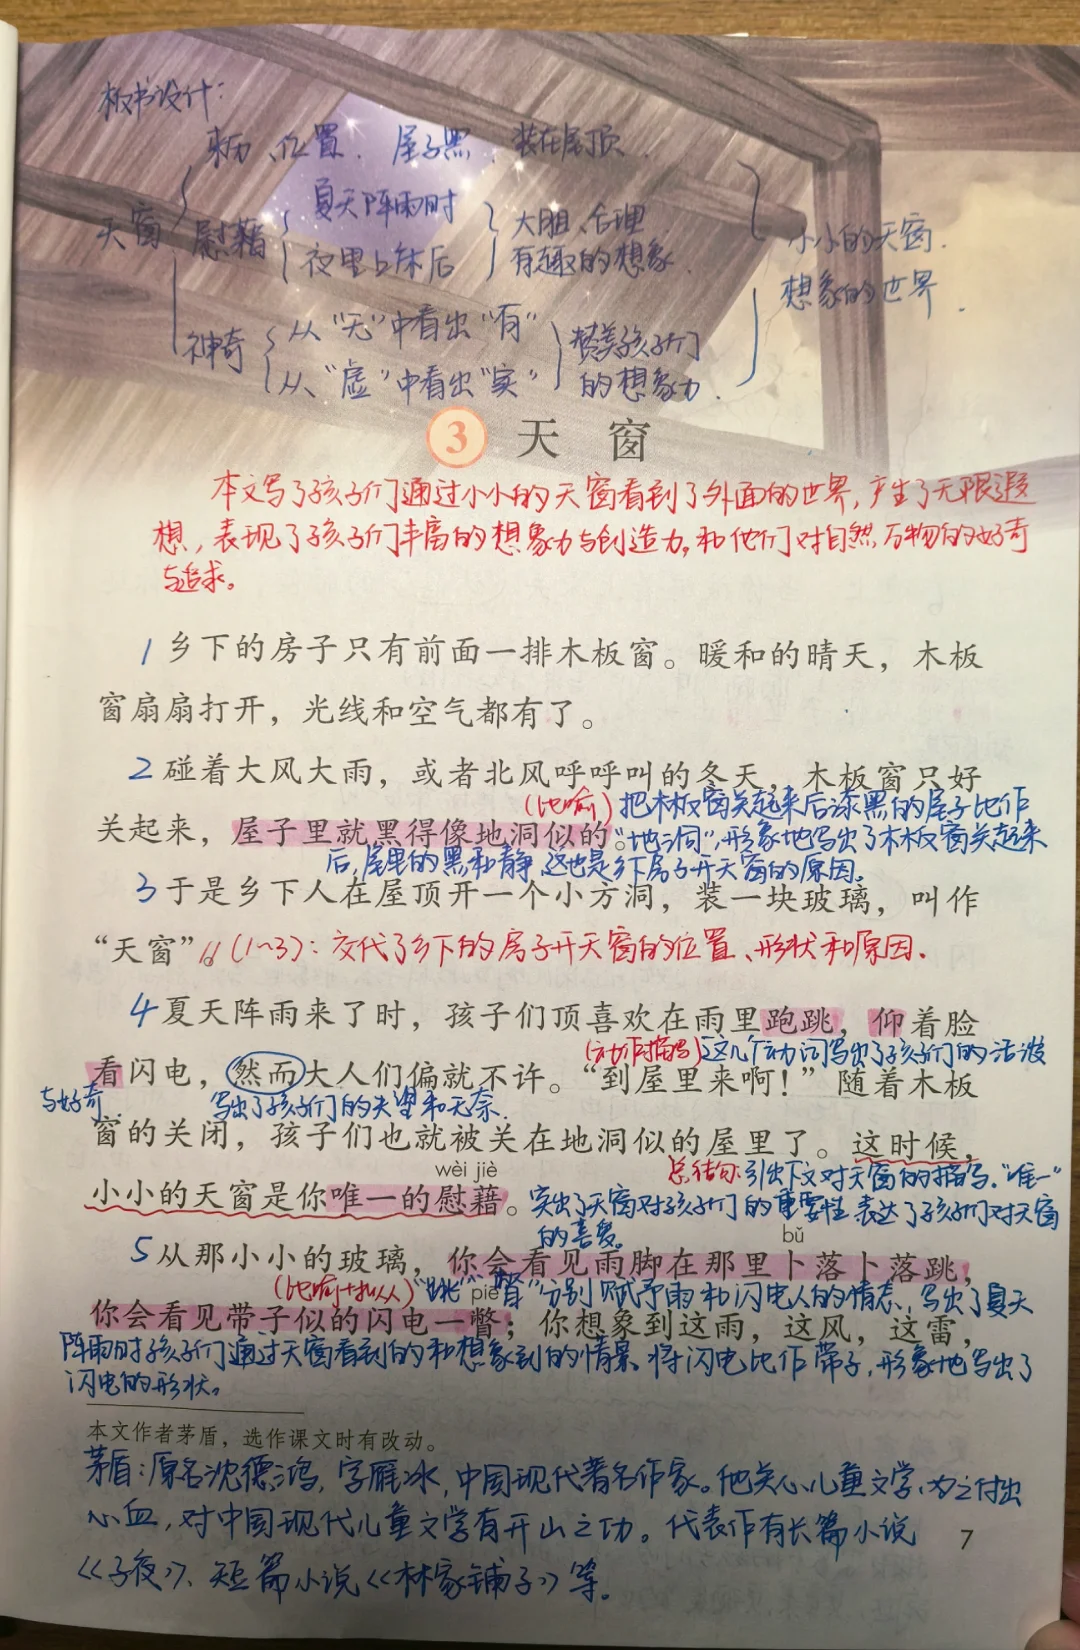 板书设计：
来历、位置：屋子黑、装在屋顶
夏天阵雨时
天窗 慰藉 大胆、合理 小小的天窗.
夜里上床后 有趣的想象 想象的世界.
从“无”中看出“有”
神奇 赞美孩子们
从“虚”中看出“实” 的想象力.
3 天窗
本文写了孩子们通过小小的天窗看到了外面的世界,产生了无限遐
想,表现了孩子们丰富的想象力与创造力,和他们对自然万物的好奇
与追求。
1 乡下的房子只有前面一排木板窗。暖和的晴天，木板
窗扇扇打开，光线和空气都有了。
2 碰着大风大雨，或者北风呼呼叫的冬天，木板窗只好
(比喻) 把木板窗关起来后漆黑的屋子比作
关起来，屋子里就黑得像地洞似的。
“地洞”,形象地写出了木板窗关起来
后,屋里的黑和静,这也是乡下房子开天窗的原因.
3 于是乡下人在屋顶开一个小方洞，装一块玻璃，叫作
“天窗”。
// (1~3)：交代了乡下的房子开天窗的位置、形状和原因.
4 夏天阵雨来了时，孩子们顶喜欢在雨里跑跳，仰着脸
(动作描写) 这几个动词写出了孩子们的活泼
看闪电，然而大人们偏就不许。“到屋里来啊！”随着木板
与好奇. 写出了孩子们的失望和无奈.
窗的关闭，孩子们也就被关在地洞似的屋里了。这时候，
wèi jiè
总结句:引出下文对天窗的描写.“唯一”
小小的天窗是你唯一的慰藉。
突出了天窗对孩子们的重要性,表达了孩子们对天窗
的喜爱。
bǔ
5 从那小小的玻璃，你会看见雨脚在那里卜落卜落跳，
(比喻+拟人)“跳”“瞥”分别赋予雨和闪电人的情态,写出了夏天
piē
你会看见带子似的闪电一瞥；你想象到这雨，这风，这雷，
阵雨时孩子们通过天窗看到的和想象到的情景.将闪电比作带子,形象地写出了
闪电的形状。
本文作者茅盾，选作课文时有改动。
茅盾:原名沈德鸿,字雁冰,中国现代著名作家。他关心儿童文学,为之付出
心血,对中国现代儿童文学有开山之功。代表作有长篇小说
《子夜》、短篇小说《林家铺子》等.
7